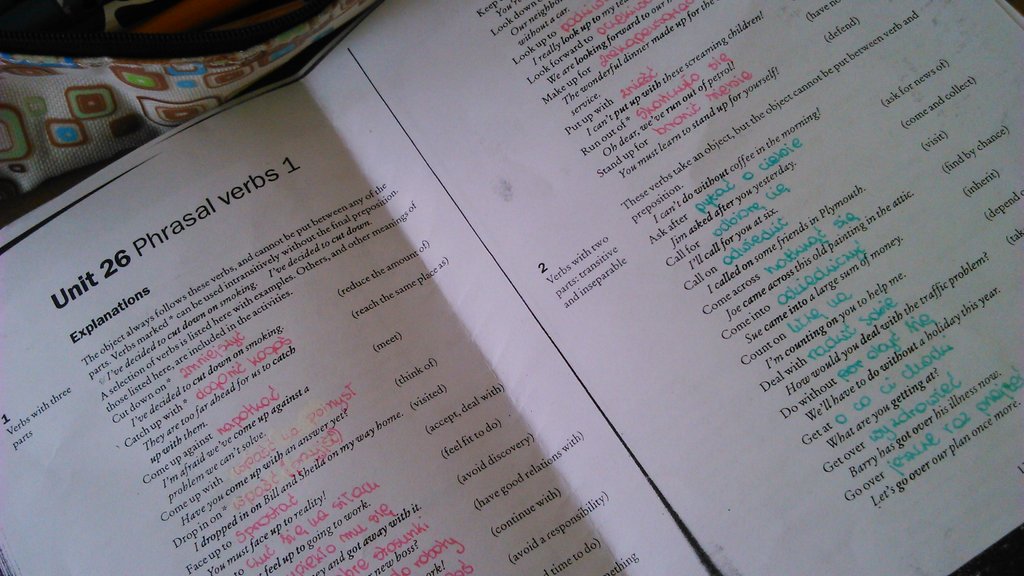 Unit 26 Phrasal verbs 1
Explanations
1
Verbs with three
parts
The object always follows these verbs, and cannot be put between any of the
parts. Verbs marked * can be used intransitively without the final preposition.
I've decided to cut down on smoking. I've decided to cut down.
A selection of verbs is listed here with examples. Others, and other meanings of
those listed here, are included in the activities.
Cut down on * zmniejszyć (reduce the amount of)
I've decided to cut down on smoking.
Catch up with * dogonić kogoś (reach the same place as)
They are too far ahead for us to catch
up with them.
Come up against napotkać (meet)
I'm afraid we've come up against a
problem we can't solve.
Come up with wpaść na pomysł (think of)
Have you come up with an answer yet?
Drop in on * (visited)
I dropped in on Bill and Sheila on my way home.
Face up to sprostać (accept, deal with)
You must face up to reality!
to czuć się na siłach (feel fit to do)
feel up to going to work.
(avoid discovery)
ney and got away with it.
(have good relations with)
new boss?
(continue with)
ork!
(avoid a responsibility)
d time to do)
ething
Keep
You
Look down
Our neighbour
without a car.
Look up to
I really look up to my
Look forward to
We are looking forward to our
Make up for
The wonderful dinner made up for the
service.
Put up with znieść
I can't put up with these screaming children!
Run out of * skończyło się (have no
Oh dear, we've run out of petrol!
Stand up for bronić siebie (defend)
You must learn to stand up for yourself!
2
Verbs with two
parts: transitive
and inseparable
These verbs take an object, but the object cannot be put between verb and
preposition.
I can't do without coffee in the morning!
Ask after pytać o ciebie (ask for news of)
Jim asked after you yesterday.
Call for (come and collect)
I'll call for you at six.
Call on odwiedzić (visit)
I called on some friends in Plymouth.
Come across natknąć się (find by chance)
Joe came across this old painting in the attic.
Come into odziedziczyć (inherit)
Sue came into a large sum of money.
Count on liczę na (depend o
I'm counting on you to help me.
Deal with radzić sobie (tak
How would you deal with the traffic problem?
Do without
We'll have to do without a holiday this year.
Get at o co ci chodzi
What are you getting at?
Get over wyzdrowieć
Barry has got over his illness now.
Go over jeszcze raz
Let's go over our plan once more.